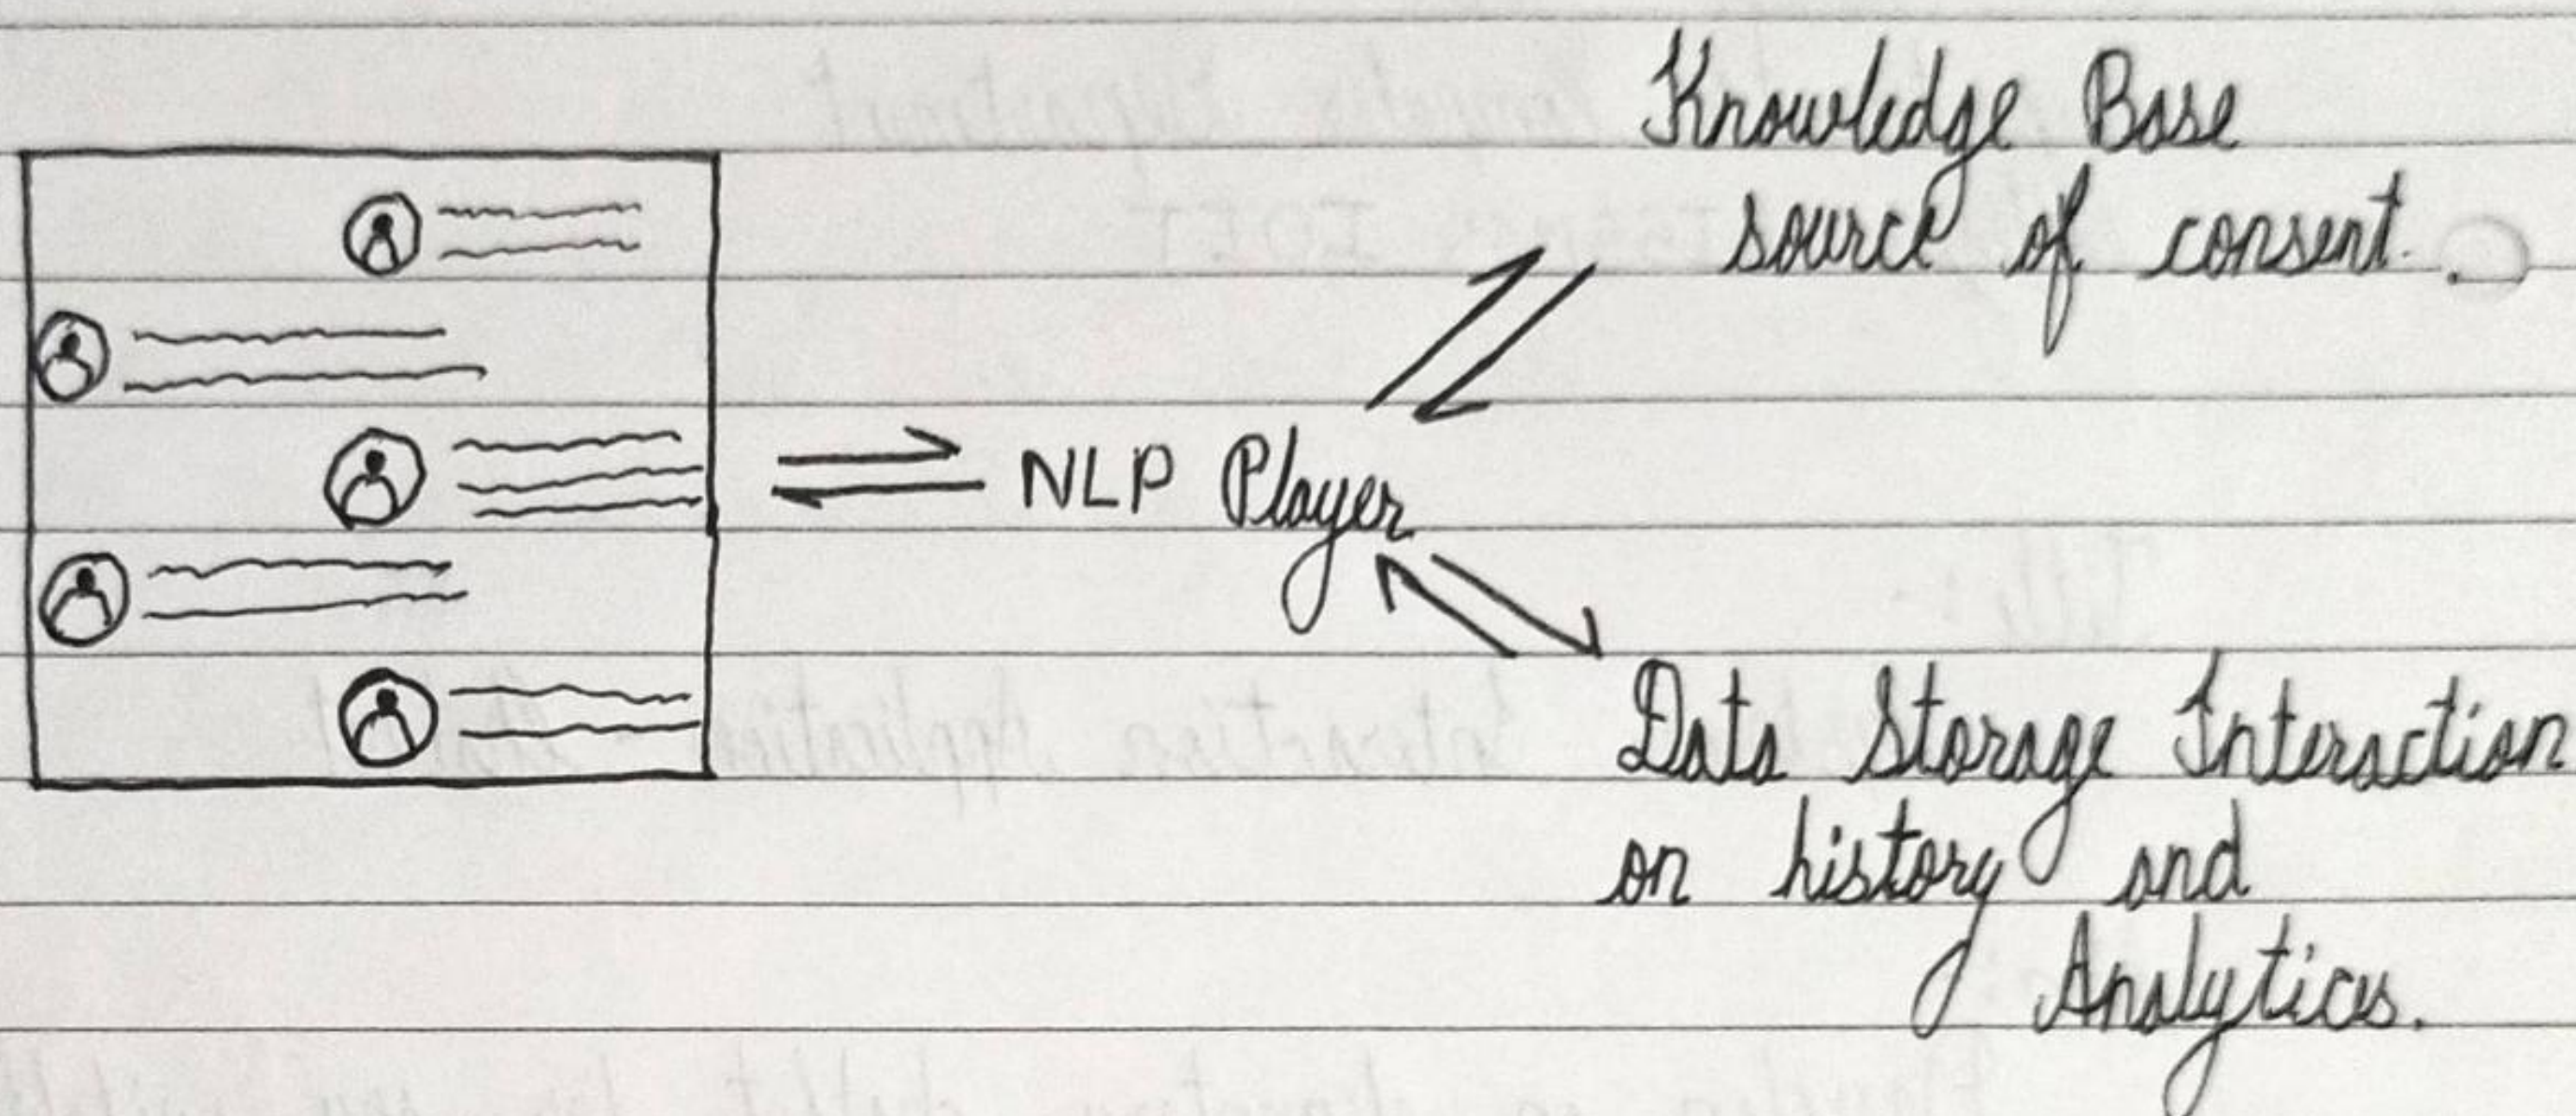 Knowledge Base
source of consent.
NLP Player
Data Storage Interaction
on history and
Analytics.